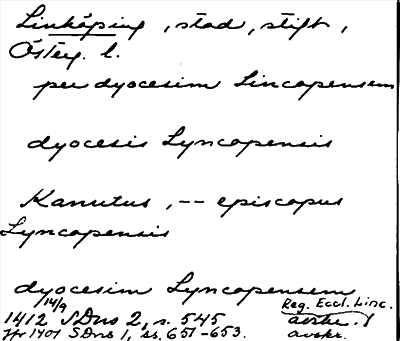 Linköping, stad, stift,
Österg. l.
per dyocesim Lincopensem
dyocesis Lyncopensis
Kanutus, -- episcopus
Lyncopensis
dyocesim Lyncopensem
14/9 Reg. Eccl. Linc.
1412 SDns 2, s. 545 avskr.
fr 1401 SDns 1, ss. 651-653. avskr.